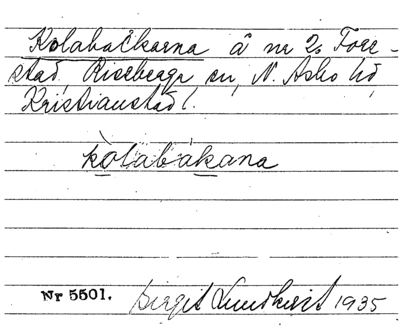 Kolabackarna å nr 2, Fore-
stad, Riseberga sn, N. Åsbo hd,
Kristianstad l.
kolabákana
Nr 5501. Birgit Lundkvist 1935